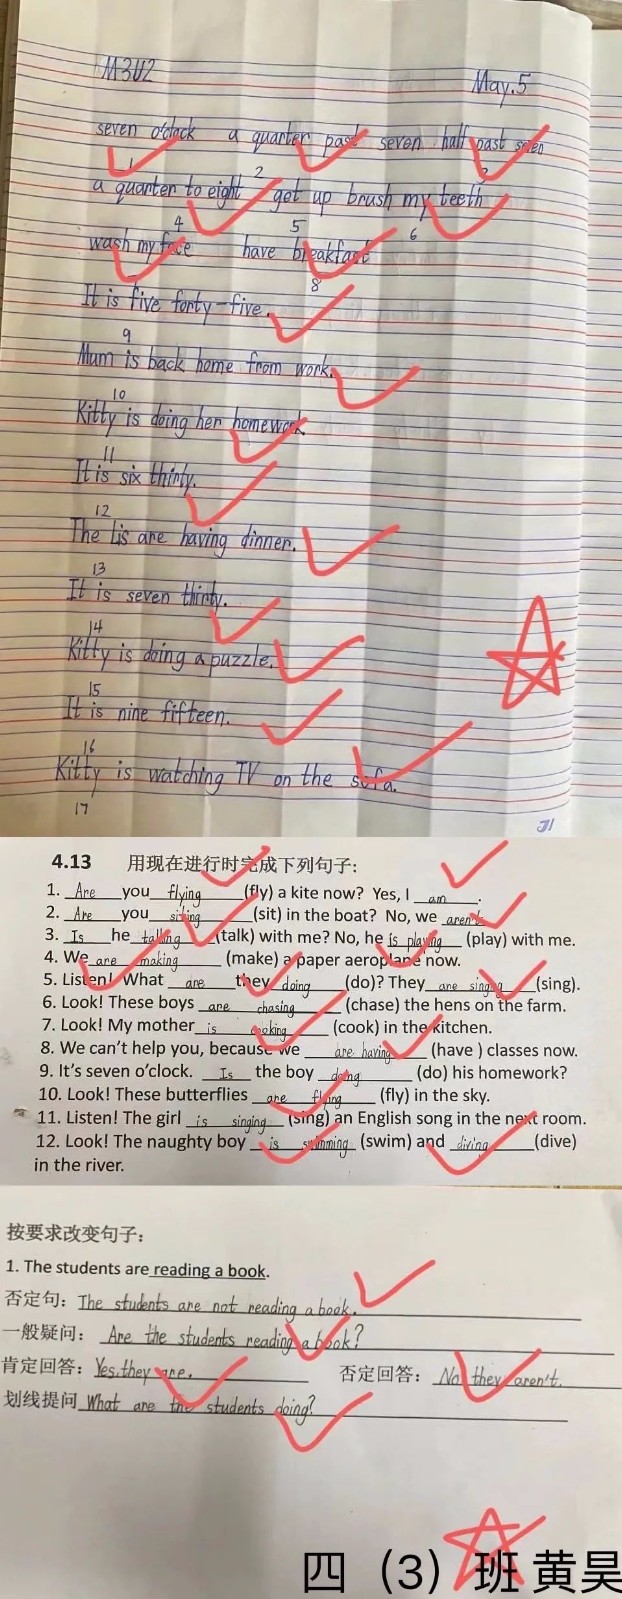 M3U2 May.5
seven o'clock a quarter past seven half past seven
1 2 3
a quarter to eight get up brush my teeth
4 5 6
wash my face have breakfast
8
It is five forty-five.
9
Mum is back home from work.
10
Kitty is doing her homework
11
It is six thirty.
12
The Lis are having dinner.
13
It is seven thirty.
14
Kitty is doing a puzzle.
15
It is nine fifteen.
16
Kitty is watching TV on the sofa.
17
4.13 用现在进行时完成下列句子：
1. Are you flying (fly) a kite now? Yes, I am.
2. Are you sitting (sit) in the boat? No, we aren't
3. Is he talking (talk) with me? No, he is playing (play) with me.
4. We are making (make) a paper aeroplane now.
5. Listen! What are they doing (do)? They are singing (sing).
6. Look! These boys are chasing (chase) the hens on the farm.
7. Look! My mother is cooking (cook) in the kitchen.
8. We can't help you, because we are having (have ) classes now.
9. It's seven o'clock. Is the boy doing (do) his homework?
10. Look! These butterflies are flying (fly) in the sky.
11. Listen! The girl is singing (sing) an English song in the next room.
12. Look! The naughty boy is swimming (swim) and diving (dive)
in the river.
按要求改变句子：
1. The students are reading a book.
否定句：The students are not reading a book.
一般疑问： Are the students reading a book?
肯定回答：Yes.they are. 否定回答： No they aren't.
划线提问 What are the students doing?
四（3）班 黄昊